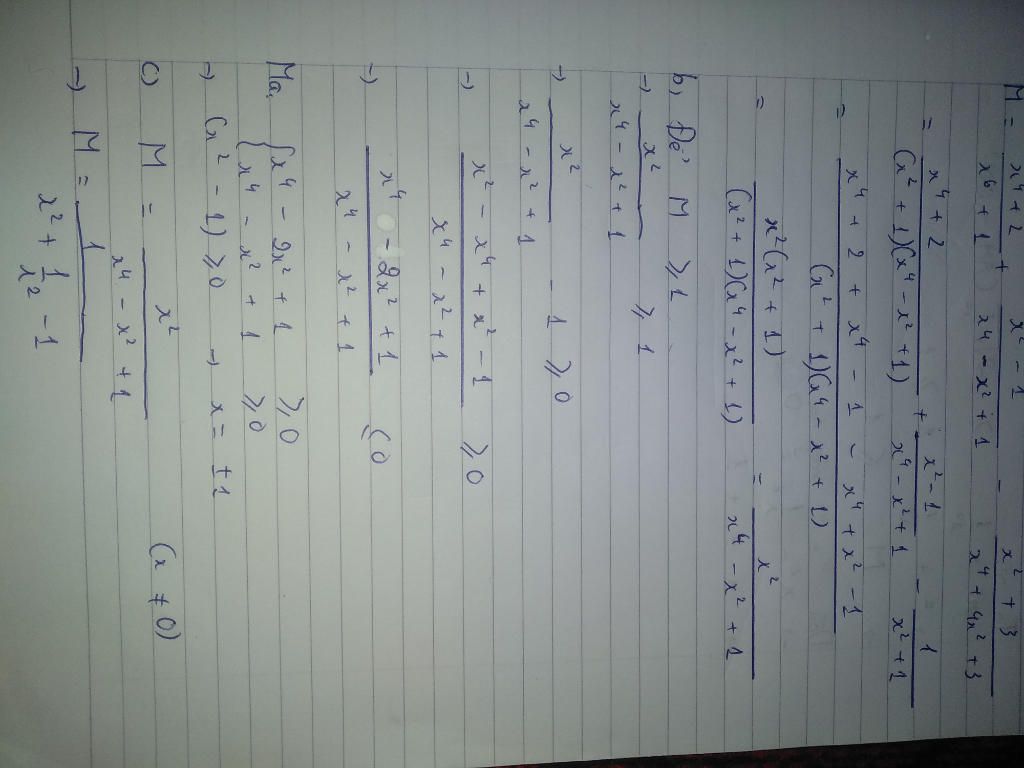 M = \frac{x^4 + 2}{x^6 + 1} + \frac{x^2 - 1}{x^4 - x^2 + 1} - \frac{x^2 + 3}{x^4 + 4x^2 + 3}
= \frac{x^4 + 2}{(x^2 + 1)(x^4 - x^2 + 1)} + \frac{x^2 - 1}{x^4 - x^2 + 1} - \frac{1}{x^2 + 1}
= \frac{x^4 + 2 + x^4 - 1 - x^4 + x^2 - 1}{(x^2 + 1)(x^4 - x^2 + 1)}
= \frac{x^2(x^2 + 1)}{(x^2 + 1)(x^4 - x^2 + 1)} = \frac{x^2}{x^4 - x^2 + 1}
b, Để M ⩾ 1
→ \frac{x^2}{x^4 - x^2 + 1} ⩾ 1
→ \frac{x^2}{x^4 - x^2 + 1} - 1 ⩾ 0
→ \frac{x^2 - x^4 + x^2 - 1}{x^4 - x^2 + 1} ⩾ 0
→ \frac{x^4 - 2x^2 + 1}{x^4 - x^2 + 1} ⩽ 0
Mà { x^4 - 2x^2 + 1 ⩾ 0
x^4 - x^2 + 1 ⩾ 0
→ (x^2 - 1) ⩾ 0 → x = ±1
c) M = \frac{x^2}{x^4 - x^2 + 1} (x ≠ 0)
→ M = \frac{1}{x^2 + \frac{1}{x^2} - 1}